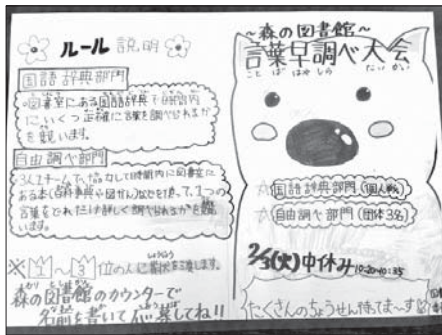 ルール説明
国語辞典部門
図書室にある国語辞典で時間内
にいくつ正確に言葉を調べられるか
を競います。
自由調べ部門
3人1チームで、協力して時間内に図書室に
ある本(百科事典や図かん)などを使って、1つの
言葉をどれだけ詳しく調べられるかを競
います。
※1~3位の人に賞状を渡します。
森の図書館のカウンターで
名前を書いて応募してね!!
~森の図書館~
言葉早調べ大会
ことば はやしら たいかい
☆国語辞典部門(個人戦)
☆自由調べ部門(団体3名)
2/3(火)中休み10:20~10:35
たくさんのちょうせん待ってま~す